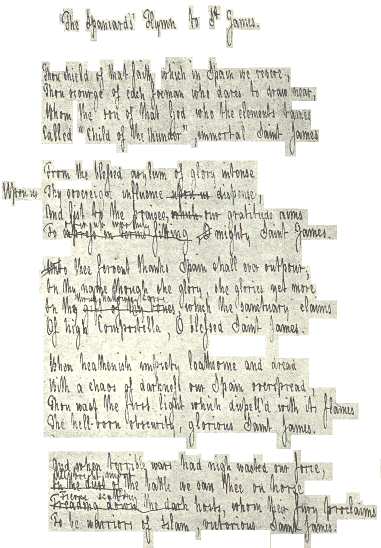 The Spaniards' Hymn to St James.
Thou shield of that faith which in Spain we revere,
Thou scourge of each foeman who dares to draw near,
Whom the son of that God who the elements tames
Called "child of the thunder", immortal Saint James
From the blessed asylum of glory intense
Upon us Thy sovereign influence upon us dispense,
And list to the praises, which our gratitude aims
To mighty Saint James.
thee fervent thanks Spain shall ever outpour,
In thy name though she glory, she glories yet more
In thy thrice hallowed corse which the sanctuary claims
Of high Compostella, O blessed Saint James.
When heathenish impiety loathsome and dread
With a chaos of darkness our Spain overspread
Thou wast the first light which dispell'd with its flames
The hell-born obscurity, glorious Saint James.
And when terrible wars had nigh wasted our force,
All bright midst
In the dust of the battle we saw thee on horse
Fierce scattering
Treading down the dark hosts, whom fury proclaims
To be warriors of Islam, victorious Saint James.